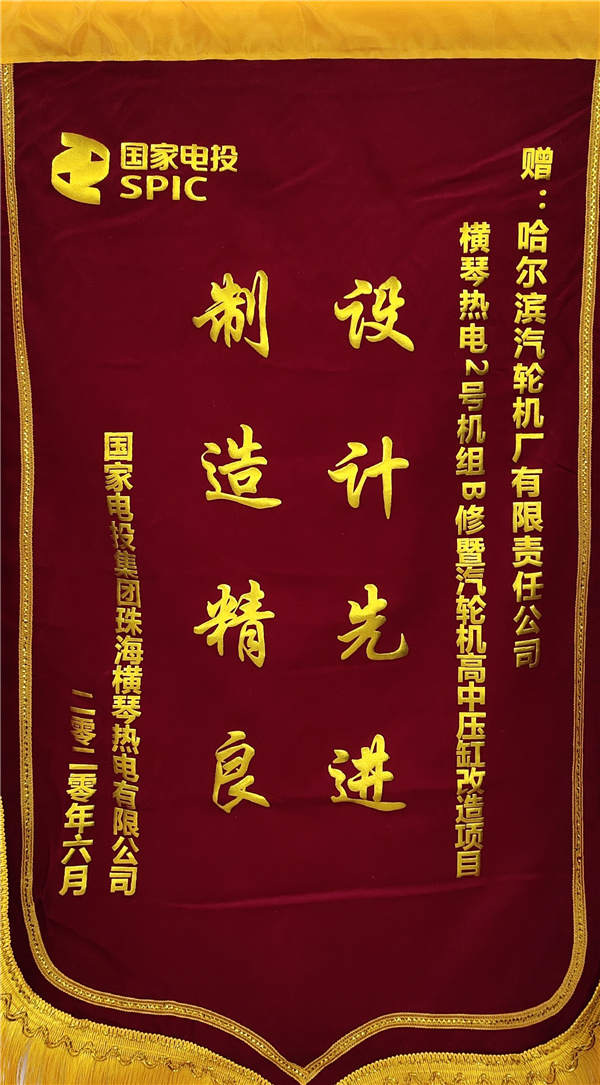 国家电投
SPIC
赠：哈尔滨汽轮机厂有限责任公司
横琴热电2号机组B修暨汽轮机高中压缸改造项目
设计先进
制造精良
国家电投集团珠海横琴热电有限公司
二零二零年六月